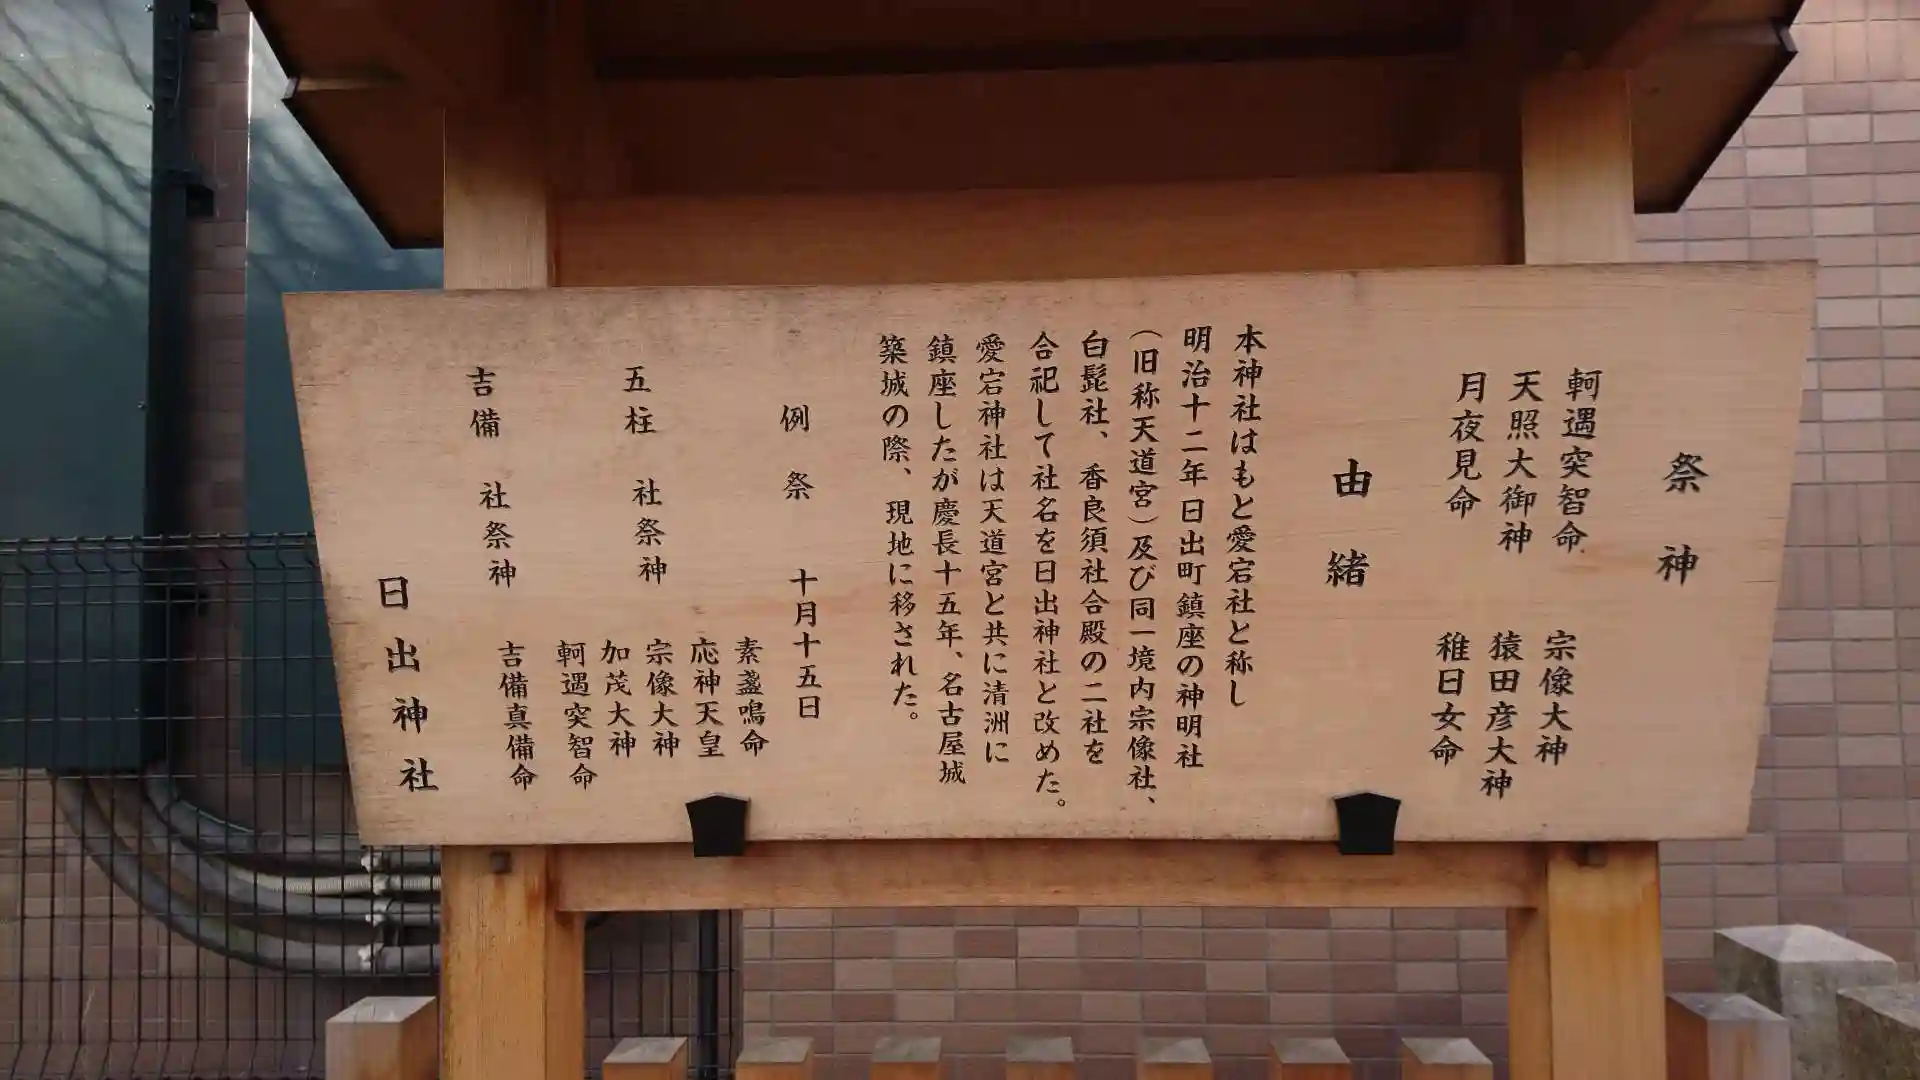 祭神
軻遇突智命
天照大御神
月夜見命
宗像大神
猿田彦大神
稚日女命
由緒
本神社はもと愛宕社と称し
明治十二年日出町鎮座の神明社
（旧称天道宮）及び同一境内宗像社、
白髭社、香良須社合殿の二社を
合祀して社名を日出神社と改めた。
愛宕神社は天道宮と共に清洲に
鎮座したが慶長十五年、名古屋城
築城の際、現地に移された。
例祭 十月十五日
五柱 社祭神
素盞鳴命
応神天皇
宗像大神
加茂大神
軻遇突智命
吉備 社祭神
吉備真備命
日出神社